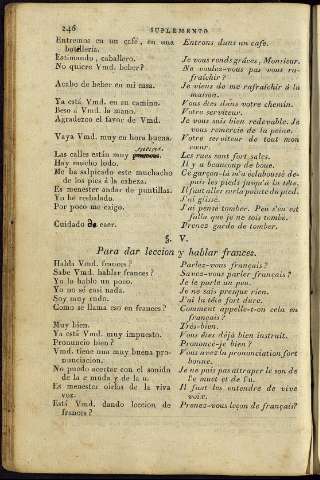 246
SUPLEMENTO
Entremos en un café, en una
botillería.
Entrons dans un café.
Estimando, caballero.
Je vous rends grâces, Monsieur.
No quiere Vmd. beber?
Ne voulez-vous pas vous ra-
fraîchir?
Acabo de beber en mi casa.
Je viens de me rafraîchir à la
maison.
Ya está Vmd. en su camino.
Vous êtes dans votre chemin.
Beso á Vmd. la mano.
Votre serviteur.
Agradezco el favor de Vmd.
Je vous suis bien redevable. Je
vous remercie de la peine.
Vaya Vmd. muy en hora buena.
Votre serviteur de tout mon
cœur.
Las calles están muy
Les rues sont fort sales.
Hay mucho lodo.
Il y a beaucoup de boue.
Me ha salpicado este muchacho
de los pies á la cabeza.
Ce garçon-là m'a éclaboussé de-
puis les pieds jusqu'à la tête.
Es menester andar de puntillas.
Il faut aller sur la pointe du pied.
Yo he resbalado.
J'ai glissé.
Por poco me caigo.
J'ai pensé tomber. Peu s'en est
fallu que je ne sois tombé.
Cuidado de caer.
Prenez garde de tomber.
§. V.
Para dar leccion y hablar frances.
Habla Vmd. frances?
Parlez-vous français?
Sabe Vmd. hablar frances?
Savez-vous parler français?
Yo lo hablo un poco.
Je le parle un peu.
Yo no sé casi nada.
Je ne sais presque rien.
Soy muy rudo.
J'ai la tête fort dure.
Como se llama eso en frances?
Comment appelle-t-on cela en
français?
Muy bien.
Très-bien.
Ya está Vmd. muy impuesto.
Vous êtes déjà bien instruit.
Pronuncio bien?
Prononcé-je bien?
Vmd. tiene una muy buena pro-
nunciacion.
Vous avez la prononciation fort
bonne.
No puedo acertar con el sonido
de la e muda y de la u.
Je ne puis pas attraper le son de
l'e muet et de l'u.
Es menester oirlos de la viva
voz.
Il faut les entendre de vive
voix.
Está Vmd. dando leccion de
frances?
Prenez-vous leçon de français?